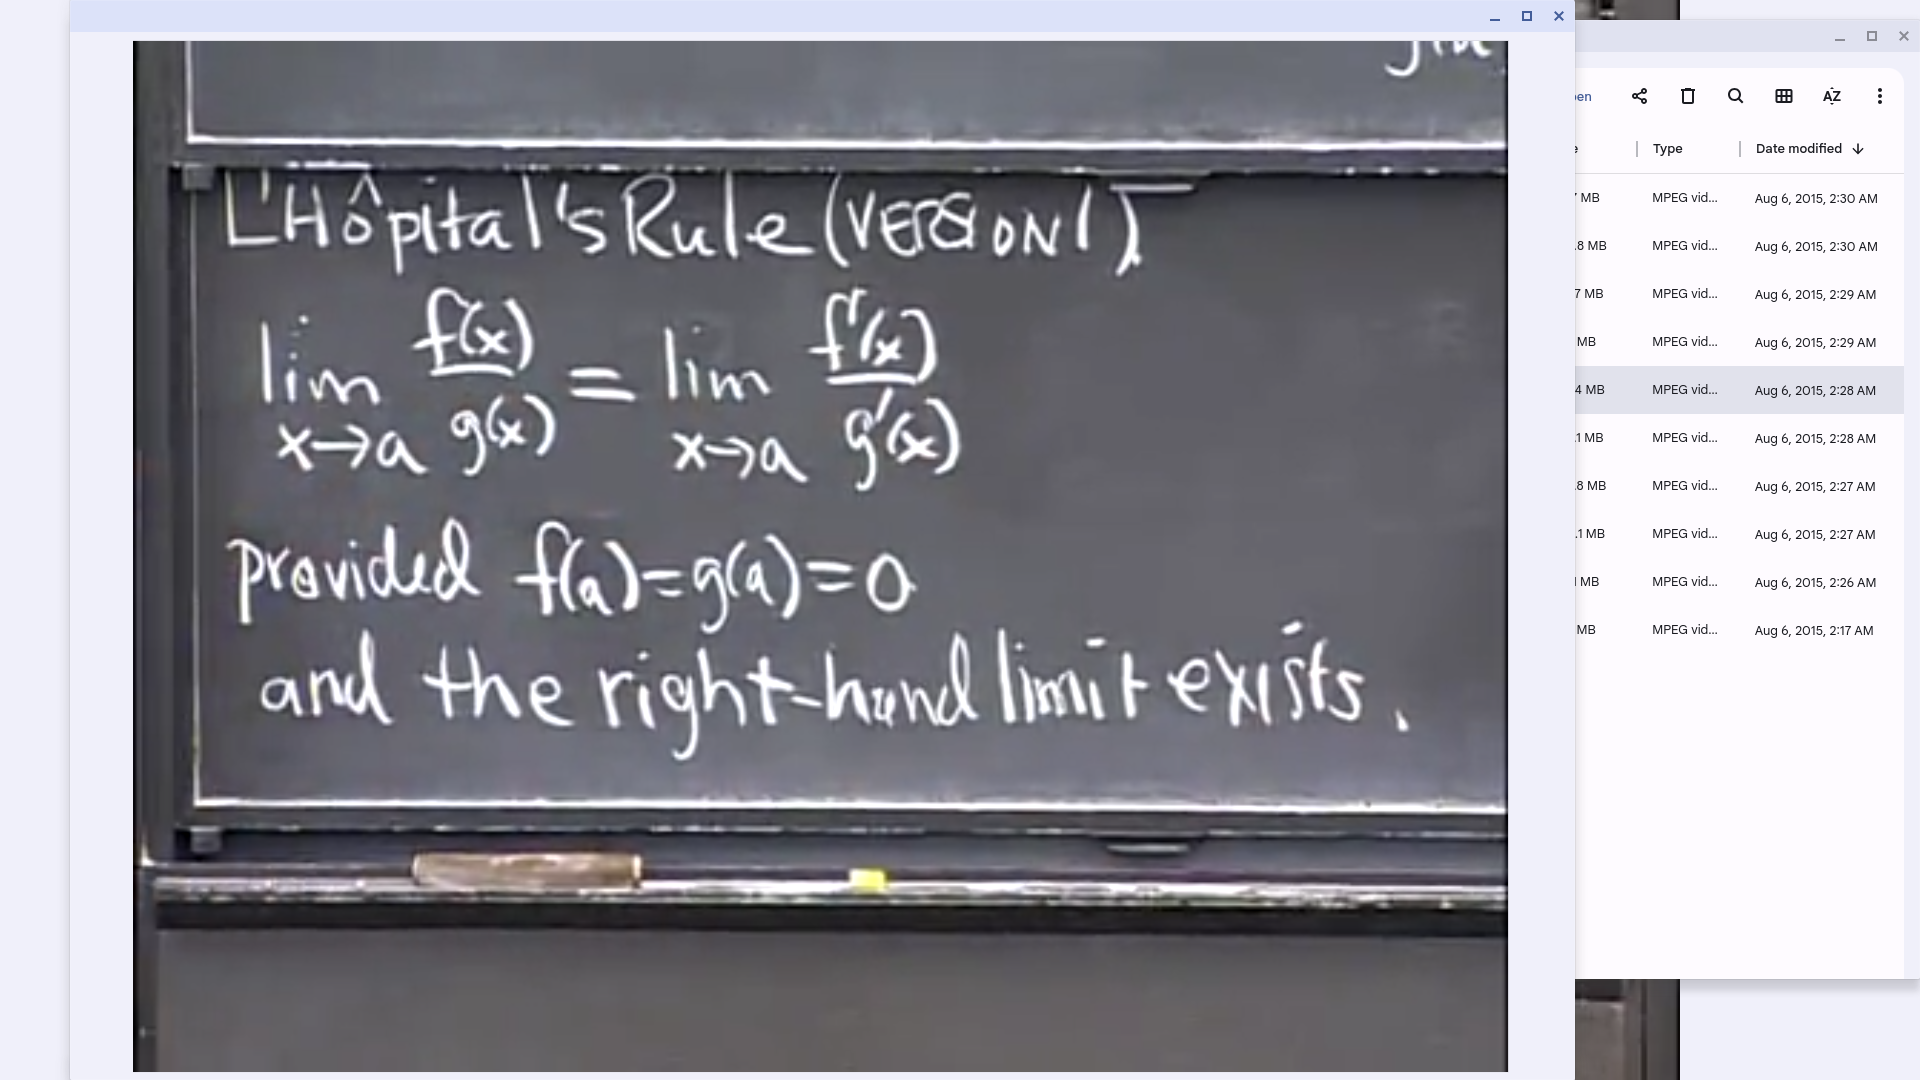 L'Hôpital's Rule (VERSION 1)
lim x→a f(x)/g(x) = lim x→a f'(x)/g'(x)
provided f(a)=g(a)=0
and the right-hand limit exists.
Type Date modified
MB MPEG vid... Aug 6, 2015, 2:30 AM
.8 MB MPEG vid... Aug 6, 2015, 2:30 AM
7 MB MPEG vid... Aug 6, 2015, 2:29 AM
MB MPEG vid... Aug 6, 2015, 2:29 AM
4 MB MPEG vid... Aug 6, 2015, 2:28 AM
.1 MB MPEG vid... Aug 6, 2015, 2:28 AM
.8 MB MPEG vid... Aug 6, 2015, 2:27 AM
.1 MB MPEG vid... Aug 6, 2015, 2:27 AM
MB MPEG vid... Aug 6, 2015, 2:26 AM
MB MPEG vid... Aug 6, 2015, 2:17 AM